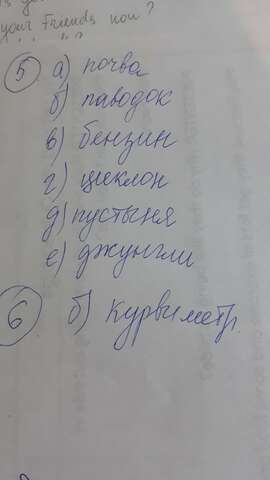 your Friends now?
5 а) почва
б) паводок
в) бензин
г) циклон
д) пустыня
е) джунгли
6 б) курвиметр.